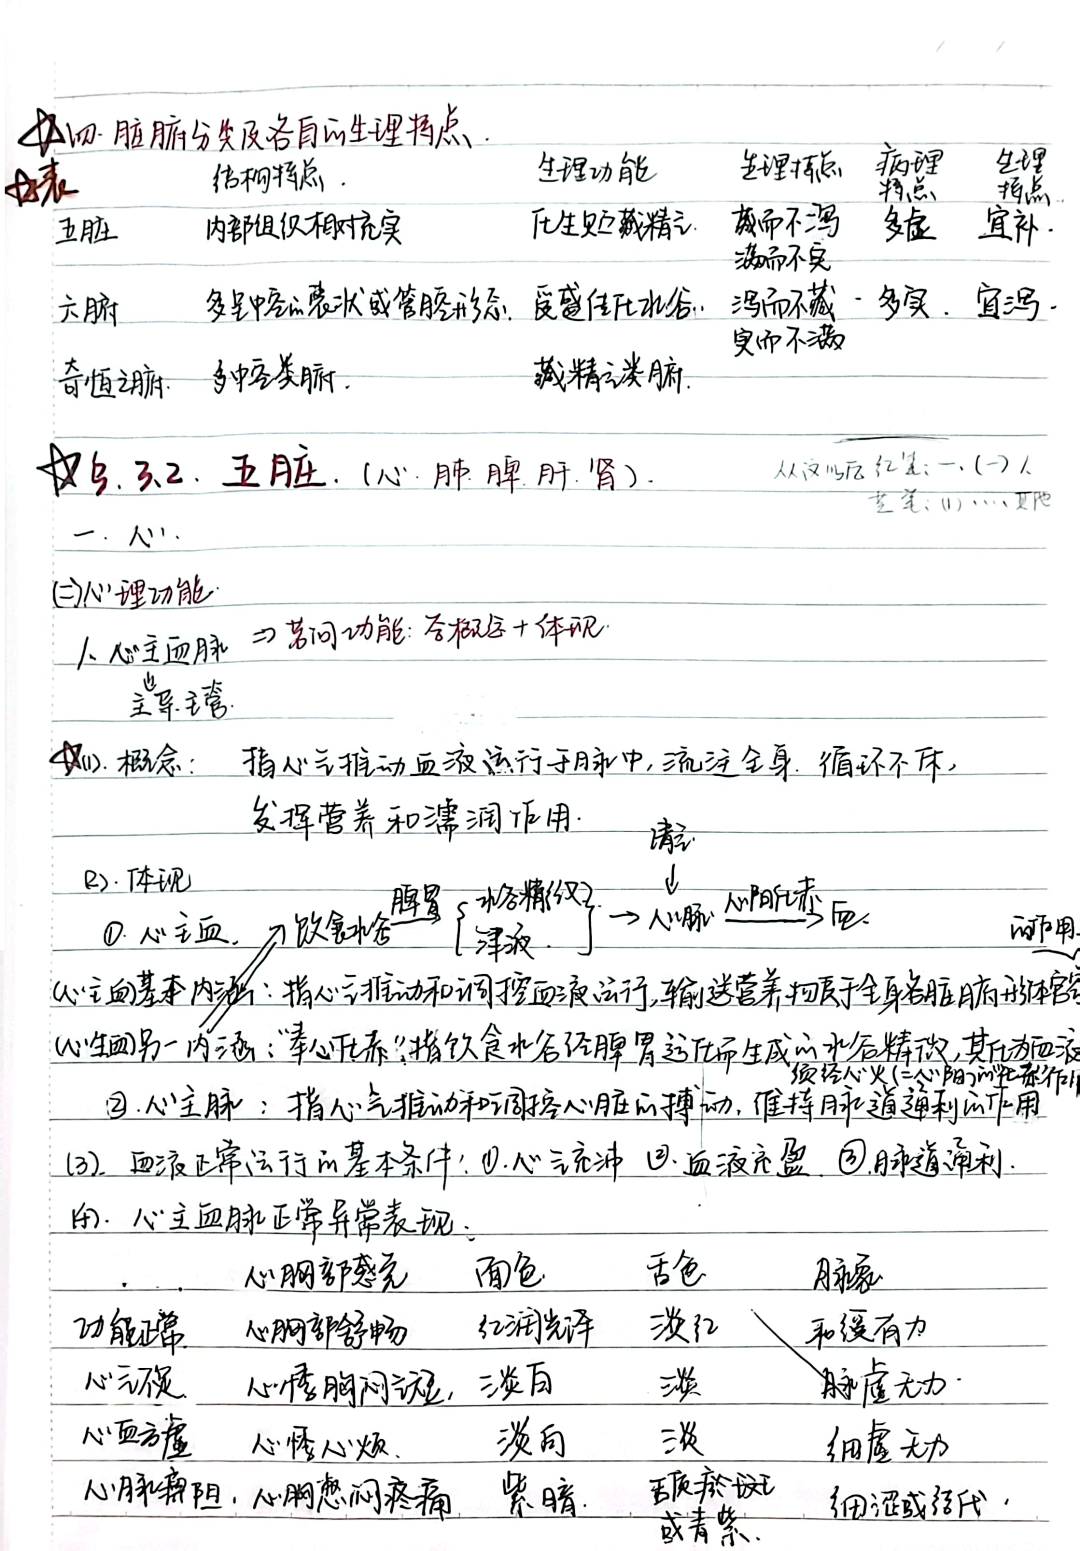 四.脏腑分类及各自的生理特点.
表 结构特点. 生理功能 生理特点 病理特点 生理特点.
五脏 内部组织相对充实 化生贮藏精气. 藏而不泻 多虚 宜补.
满而不实
六腑 多呈中空的囊状或管腔形态. 受盛传化水谷. 泻而不藏 多实. 宜泻.
实而不满
奇恒之腑. 多中空类腑. 藏精气类脏.
§.3.2. 五脏.(心.肺.脾.肝.肾).
从这以后 红笔:一、(一)人
蓝笔:(1)....其他
一.心.
(二)心理功能.
1、心主血脉 ⇒若问功能:答概念+体现.
⇓
主导.主管.
(1).概念: 指心气推动血液运行于脉中,流注全身.循环不休,
发挥营养和濡润作用.
清气
↓
(2).体现
①.心主血. 饮食水谷 脾胃→ {水谷精微 津液.} → 心脉 心阳化赤→ 血.
的作用.
(心主血)基本内涵:指心气推动和调控血液运行,输送营养物质于全身各脏腑形体官窍
(心生血)另一内涵:“奉心化赤”.指饮食水谷经脾胃运化而生成的水谷精微,其化为血液
须经心火(=心阳)的“化赤”作用
②.心主脉:指心气推动和调控心脏的搏动,维持脉道通利的作用
(3).血液正常运行的基本条件:①.心气充沛 ②.血液充盈.③.脉道通利.
(4).心主血脉正常异常表现:
心胸部感觉 面色. 舌色 脉象
功能正常. 心胸部舒畅 红润光泽 淡红 和缓有力
心气不足. 心悸胸闷气短, 淡白 淡 脉虚无力.
心血亏虚 心悸心烦. 淡白 淡 细虚无力
心脉痹阻. 心胸憋闷疼痛 紫暗. 舌质瘀斑 细涩或结代.
或青紫.